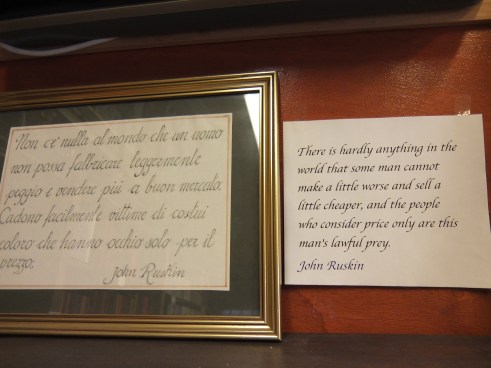 Non c'è nulla al mondo che un uomo
non possa fabbricare leggermente
peggio e vendere più a buon mercato.
Cadono facilmente vittime di costui
coloro che hanno occhio solo per il
prezzo.
John Ruskin
There is hardly anything in the
world that some man cannot
make a little worse and sell a
little cheaper, and the people
who consider price only are this
man's lawful prey.
John Ruskin